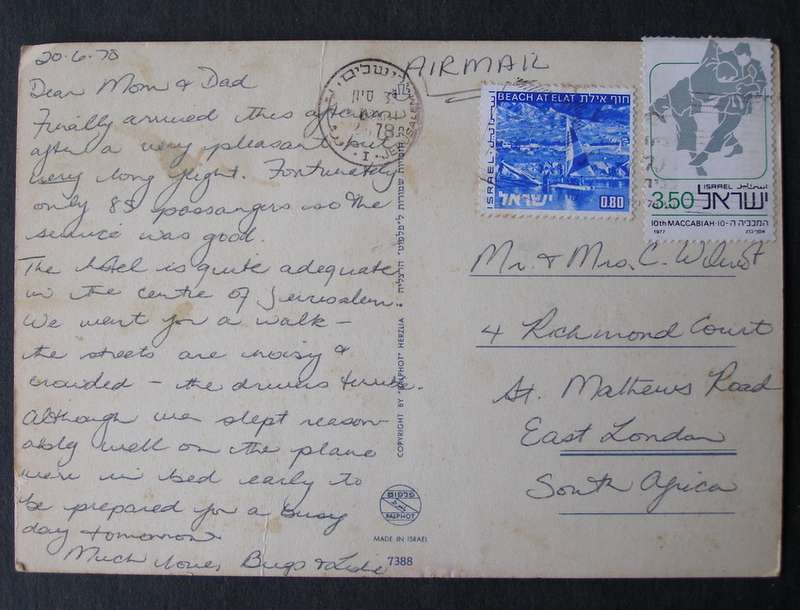 20-6-78
Dear Mom & Dad
Finally arrived this afternoon
after a very pleasant but
very long flight. Fortunately
only 85 passangers so the
service was good.
The hotel is quite adequate
in the centre of Jerusalem.
We went for a walk –
the streets are noisy &
crowded – the drivers
Although we slept reason-
ably well on the plane
were in bed early to
be prepared for a busy
day tomorrow.
Much love, Bugs &
AIRMAIL
ירושלים
JERUSALEM
78
חוף אילת
BEACH AT ELAT
ISRAEL
ישראל
0.80
ISRAEL
3.50 ישראל
10th MACCABIAH · המכביה ה-10
1977
Mr. & Mrs. C.
4 Richmond Court
St. Mathews Road
East London
South Africa
COPYRIGHT BY "PALPHOT" HERZLIA
פלפוט
PALPHOT
MADE IN ISRAEL
7388